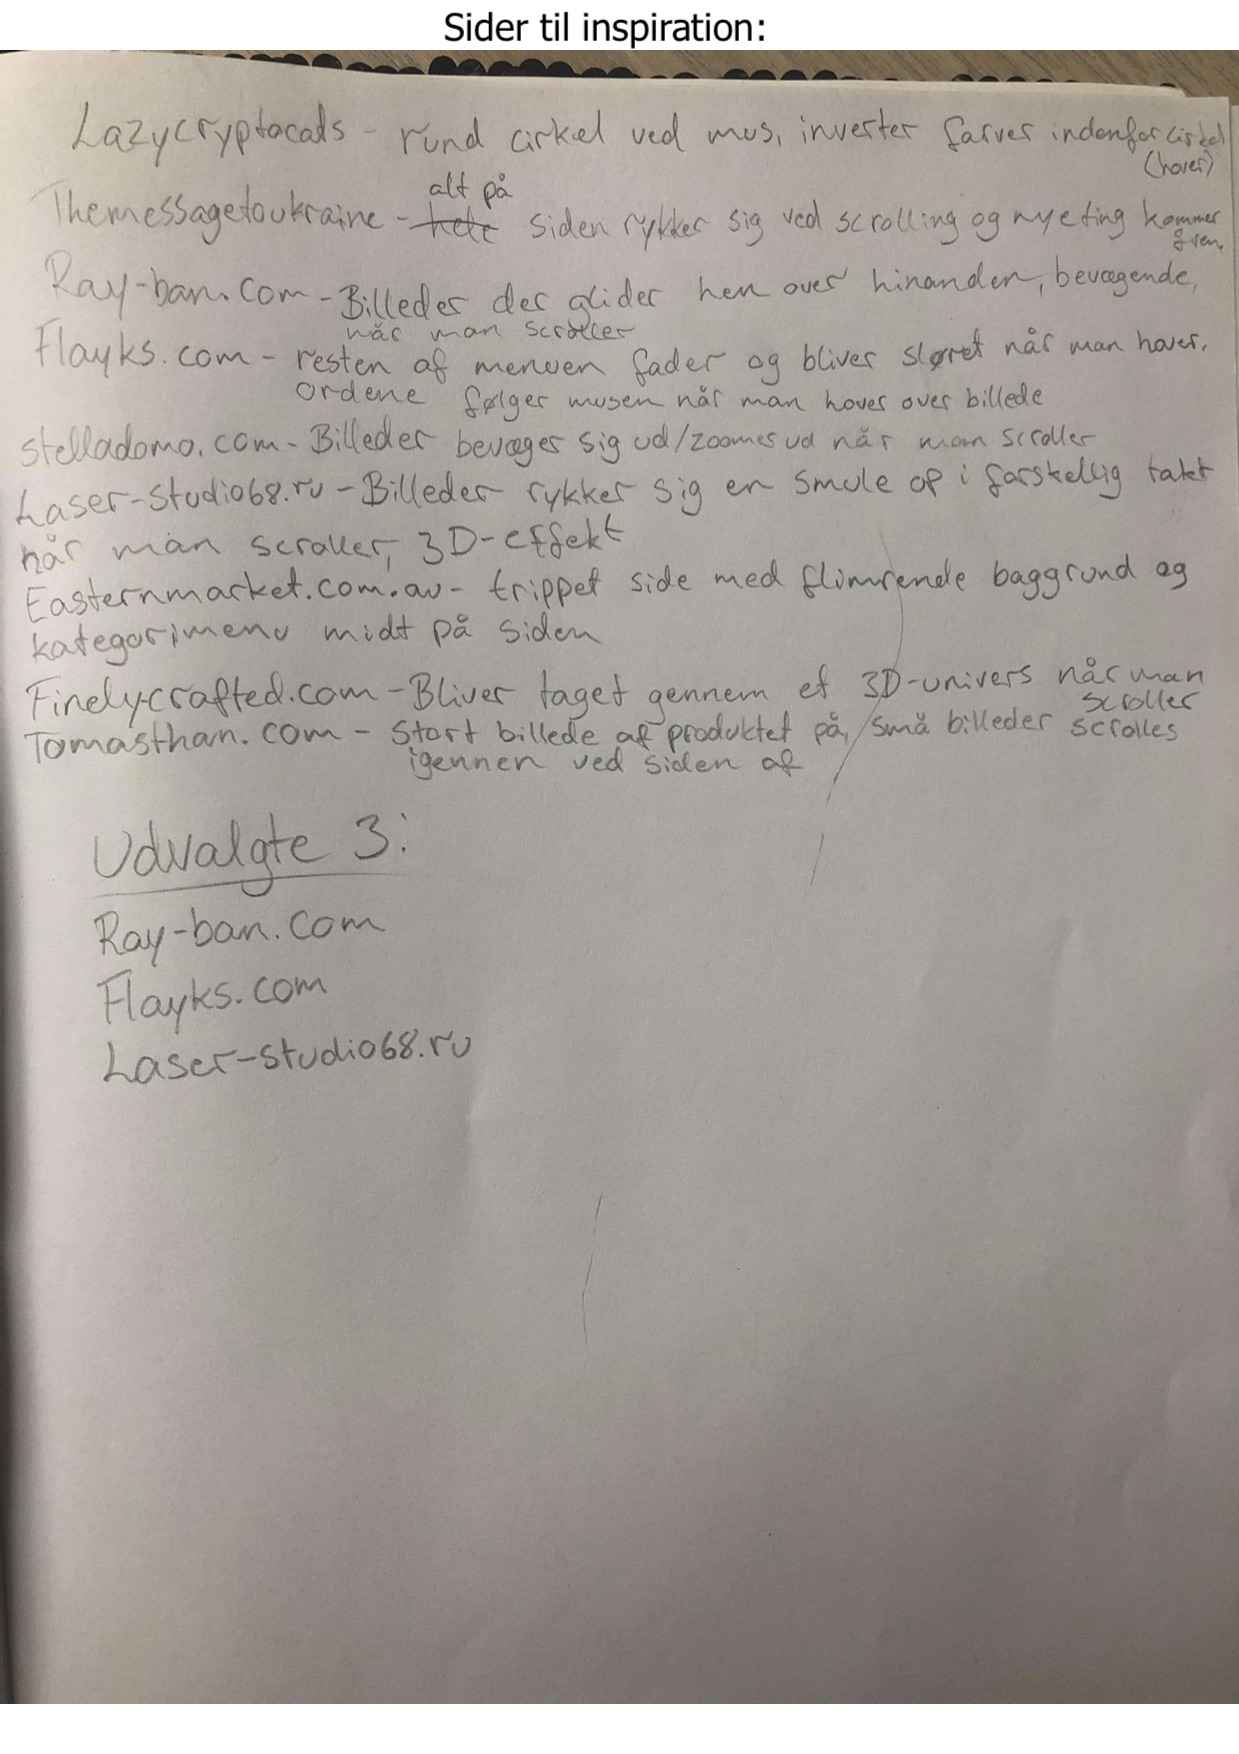 Sider til inspiration:
Lazycryptocats - rund cirkel ved mus, inverter farver indenfor cirkel
(hover)
alt på
Themessagetoukraine - hele siden rykker sig ved scrolling og nye ting kommer
frem
Ray-ban.com - Billeder der glider hen over hinanden, bevægende,
når man scroller
Flayks.com - resten af menuen fader og bliver sløret når man hover.
Ordene følger musen når man hover over billede
stelladomo.com - Billeder bevæger sig ud/zoomes ud når man scroller
Laser-studio68.ru - Billeder rykker sig en smule op i forskellig takt
når man scroller, 3D-effekt
Easternmarket.com.au - trippet side med flimrende baggrund og
kategorimenu midt på siden
Finelycrafted.com - Bliver taget gennem et 3D-univers når man
scroller
Tomasthan.com - Stort billede af produktet på, små billeder scrolles
igennem ved siden af
Udvalgte 3:
Ray-ban.com
Flayks.com
Laser-studio68.ru